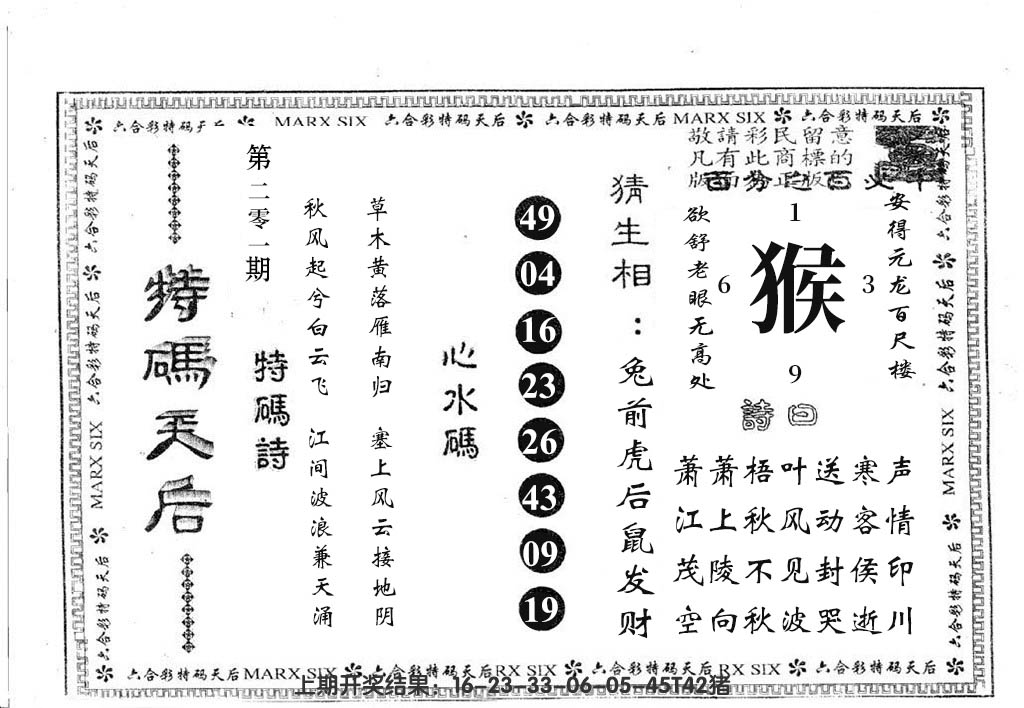 六合彩特码天后 MARX SIX 六合彩特码天后 六合彩特码天后 MARX SIX 六合彩特码天后
敬請彩民留意
凡有此商標的
版面为正版
特碼天后
第二零一期
特碼詩
秋风起兮白云飞 江间波浪兼天涌
草木黄落雁南归 塞上风云接地阴
心水碼
49
04
16
23
26
43
09
19
猜生相：兔前虎后鼠发财
欲舒老眼无高处
1
6 猴 3
9
安得元龙百尺楼
詩曰
萧萧梧叶送寒声
江上秋风动客情
茂陵不见封侯印
空向秋波哭逝川
六合彩特码天后 MARX SIX 六合彩特码天后
六合彩特码天后 MARX SIX 六合彩特码天后
六合彩特码天后 MARX SIX 六合彩特码天后 RX SIX 六合彩特码天后 RX SIX 六合彩特码天后
上期开奖结果：16-23-33-06-05-45T42猪